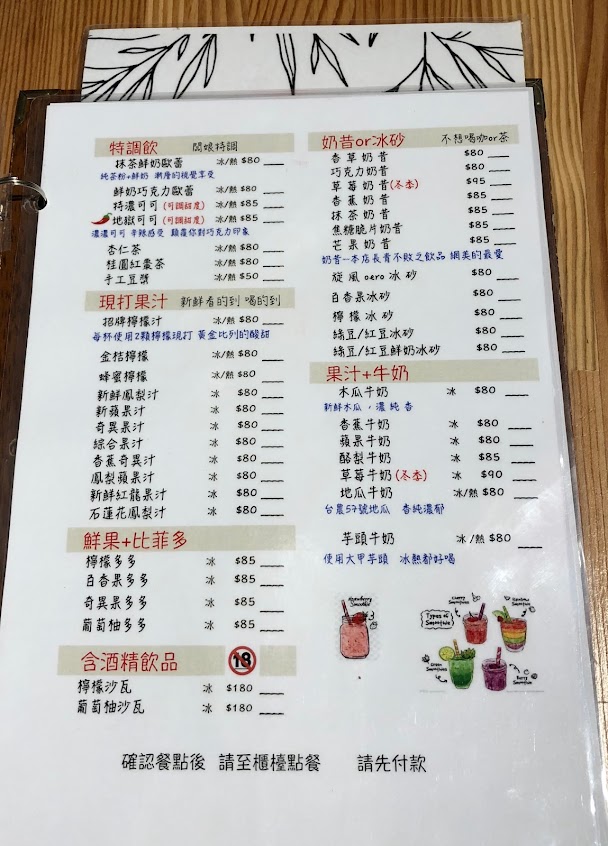 特調飲 闆娘特調
抹茶鮮奶歐蕾 冰/熱 $80
純茶粉+鮮奶 漸層的視覺享受
鮮奶巧克力歐蕾 冰/熱 $80
特濃可可 (可調甜度) 冰/熱 $85
地獄可可 (可調甜度) 冰/熱 $85
濃濃可可 辛辣感受 顛覆你對巧克力印象
杏仁茶 冰/熱 $80
桂圓紅棗茶 冰/熱 $80
手工豆漿 冰/熱 $50
現打果汁 新鮮看的到 喝的到
招牌檸檬汁 冰/熱 $80
每杯使用2顆檸檬現打 黃金比列的酸甜
金桔檸檬 冰/熱 $80
蜂蜜檸檬 冰/熱 $80
新鮮鳳梨汁 冰 $80
新蘋果汁 冰 $80
奇異果汁 冰 $80
綜合果汁 冰 $80
香蕉奇異汁 冰 $80
鳳梨蘋果汁 冰 $80
新鮮紅龍果汁 冰 $80
石蓮花鳳梨汁 冰 $80
鮮果+比菲多
檸檬多多 冰 $85
百香果多多 冰 $85
奇異果多多 冰 $85
葡萄柚多多 冰 $85
含酒精飲品 18
檸檬沙瓦 冰 $180
葡萄柚沙瓦 冰 $180
奶昔or冰砂 不想喝咖or茶
香草奶昔 $80
巧克力奶昔 $80
草莓奶昔(冬季) $95
香蕉奶昔 $85
抹茶奶昔 $85
焦糖脆片奶昔 $85
芒果奶昔 $85
奶昔一本店長青不敗之飲品 網美的最愛
旋風oero冰砂 $80
百香果冰砂 $80
檸檬冰砂 $80
綠豆/紅豆冰砂 $80
綠豆/紅豆鮮奶冰砂 $80
果汁+牛奶
木瓜牛奶 冰 $80
新鮮木瓜，濃 純 香
香蕉牛奶 冰 $80
蘋果牛奶 冰 $80
酪梨牛奶 冰 $85
草莓牛奶(冬季) 冰 $90
地瓜牛奶 冰/熱 $80
台農57號地瓜 香純濃郁
芋頭牛奶 冰/熱 $80
使用大甲芋頭 冰熱都好喝
Strawberry
Smoothie
Cherry
Smoothie
Types of
Smoothie
Rainbow
Smoothie
Green
Smoothie
Berry
Smoothie
確認餐點後 請至櫃檯點餐 請先付款